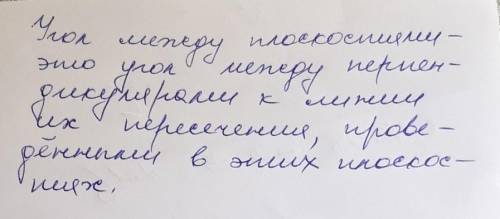 Угол между плоскостями–
это угол между перпен-
дикулярами к линии
их пересечения, прове-
дёнными в этих плоскос-
тях.